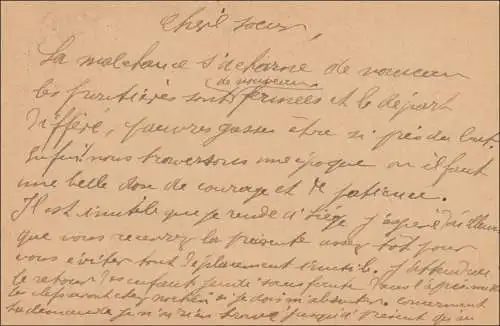 Chère soeur,
La malchance s'acharne de nouveau
de nouveau
les frontières sont fermées et le départ
différé, pauvres gosses être si près du but.
Enfin nous traversons une époque ou il faut
une belle dose de courage et de patience.
Il est inutile que je rende à Liège j'espère d'ailleurs
que vous recevrez la présente assez tôt pour
vous éviter tout déplacement inutile. J'attendrai
le retour des enfants
les clefs sont chez si je dois m'absenter. concernant
je n'ai rien trouvé jusqu'à présent